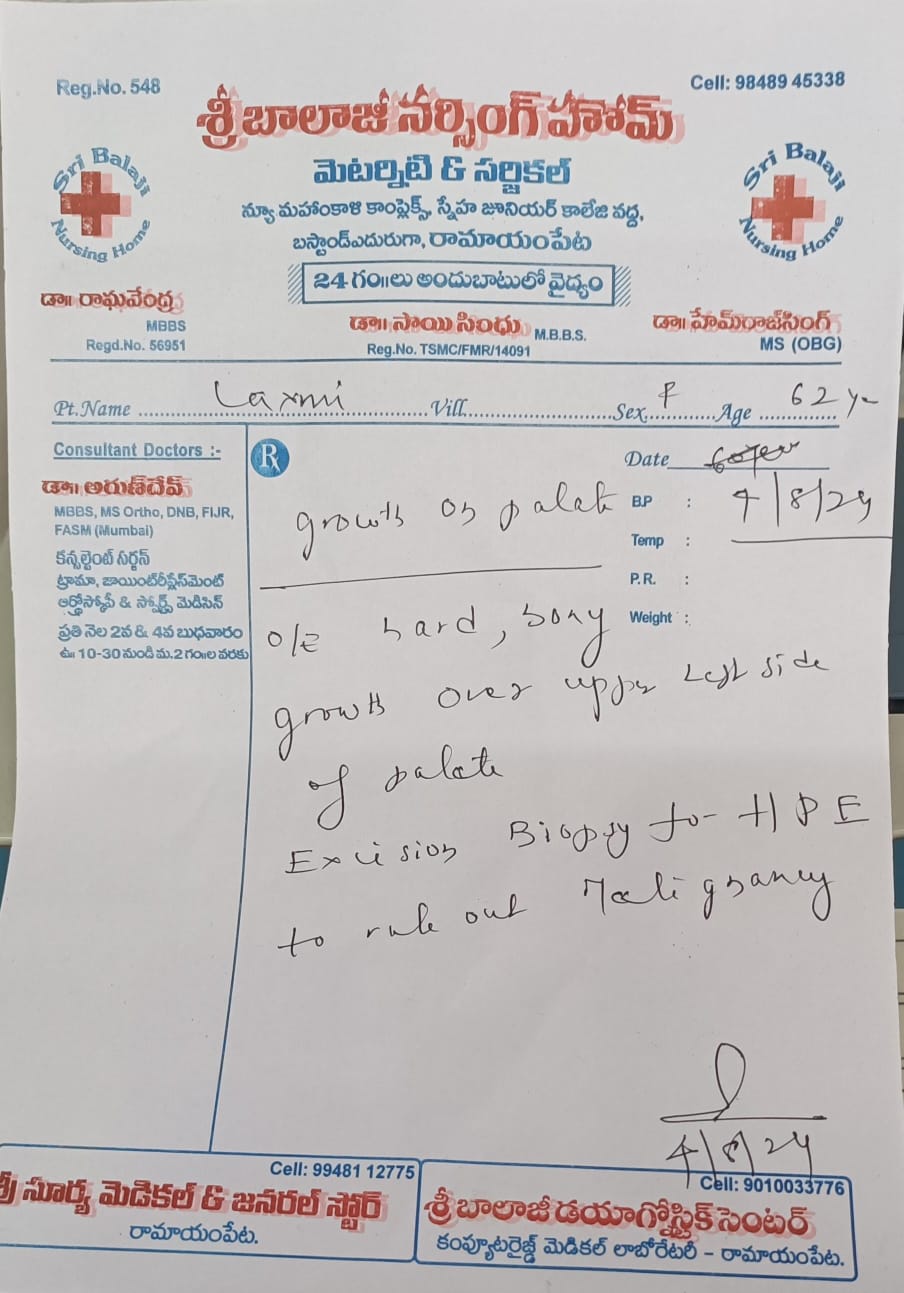 Reg.No. 548
Cell: 98489 45338
శ్రీ బాలాజీ నర్సింగ్ హోమ్
మెటర్నిటి & సర్జికల్
Sri Balaji Nursing Home
Sri Balaji Nursing Home
న్యూ మహాంకాళి కాంప్లెక్స్, స్నేహ జూనియర్ కాలేజి వద్ద,
బస్టాండ్ఎదురుగా, రామాయంపేట
24 గం॥లు అందుబాటులో వైద్యం
డా॥ రాఘవేంద్ర
MBBS
Regd.No. 56951
డా॥ సాయి సింధు M.B.B.S.
Reg.No. TSMC/FMR/14091
డా॥ హేమ్‌రాజ్‌సింగ్
MS (OBG)
Pt.Name Laxmi Vill. Sex F Age 62 yr
Consultant Doctors :-
డా॥ అరుణ్‌దేవ్
MBBS, MS Ortho, DNB, FIJR,
FASM (Mumbai)
కన్సల్టెంట్ సర్జన్
ట్రామా, జాయింట్‌రీప్లేస్‌మెంట్
ఆర్థ్రోస్కోపీ & స్పోర్ట్స్ మెడిసిన్
ప్రతి నెల 2వ & 4వ బుధవారం
ఉ॥ 10-30 నుండి మ. 2 గం॥ల వరకు
Rx
Date
B.P : 4/8/24
Temp :
P.R. :
Weight :
growth on palate
o/E hard, bony
growth over upper Left side
of palate
Excision Biopsy for HPE
to rule out Malignancy
4/8/24
Cell: 99481 12775
శ్రీ సూర్య మెడికల్ & జనరల్ స్టోర్
రామాయంపేట.
Cell: 9010033776
శ్రీ బాలాజీ డయాగ్నోస్టిక్ సెంటర్
కంప్యూటరైజ్డ్ మెడికల్ లాబోరేటరీ – రామాయంపేట.